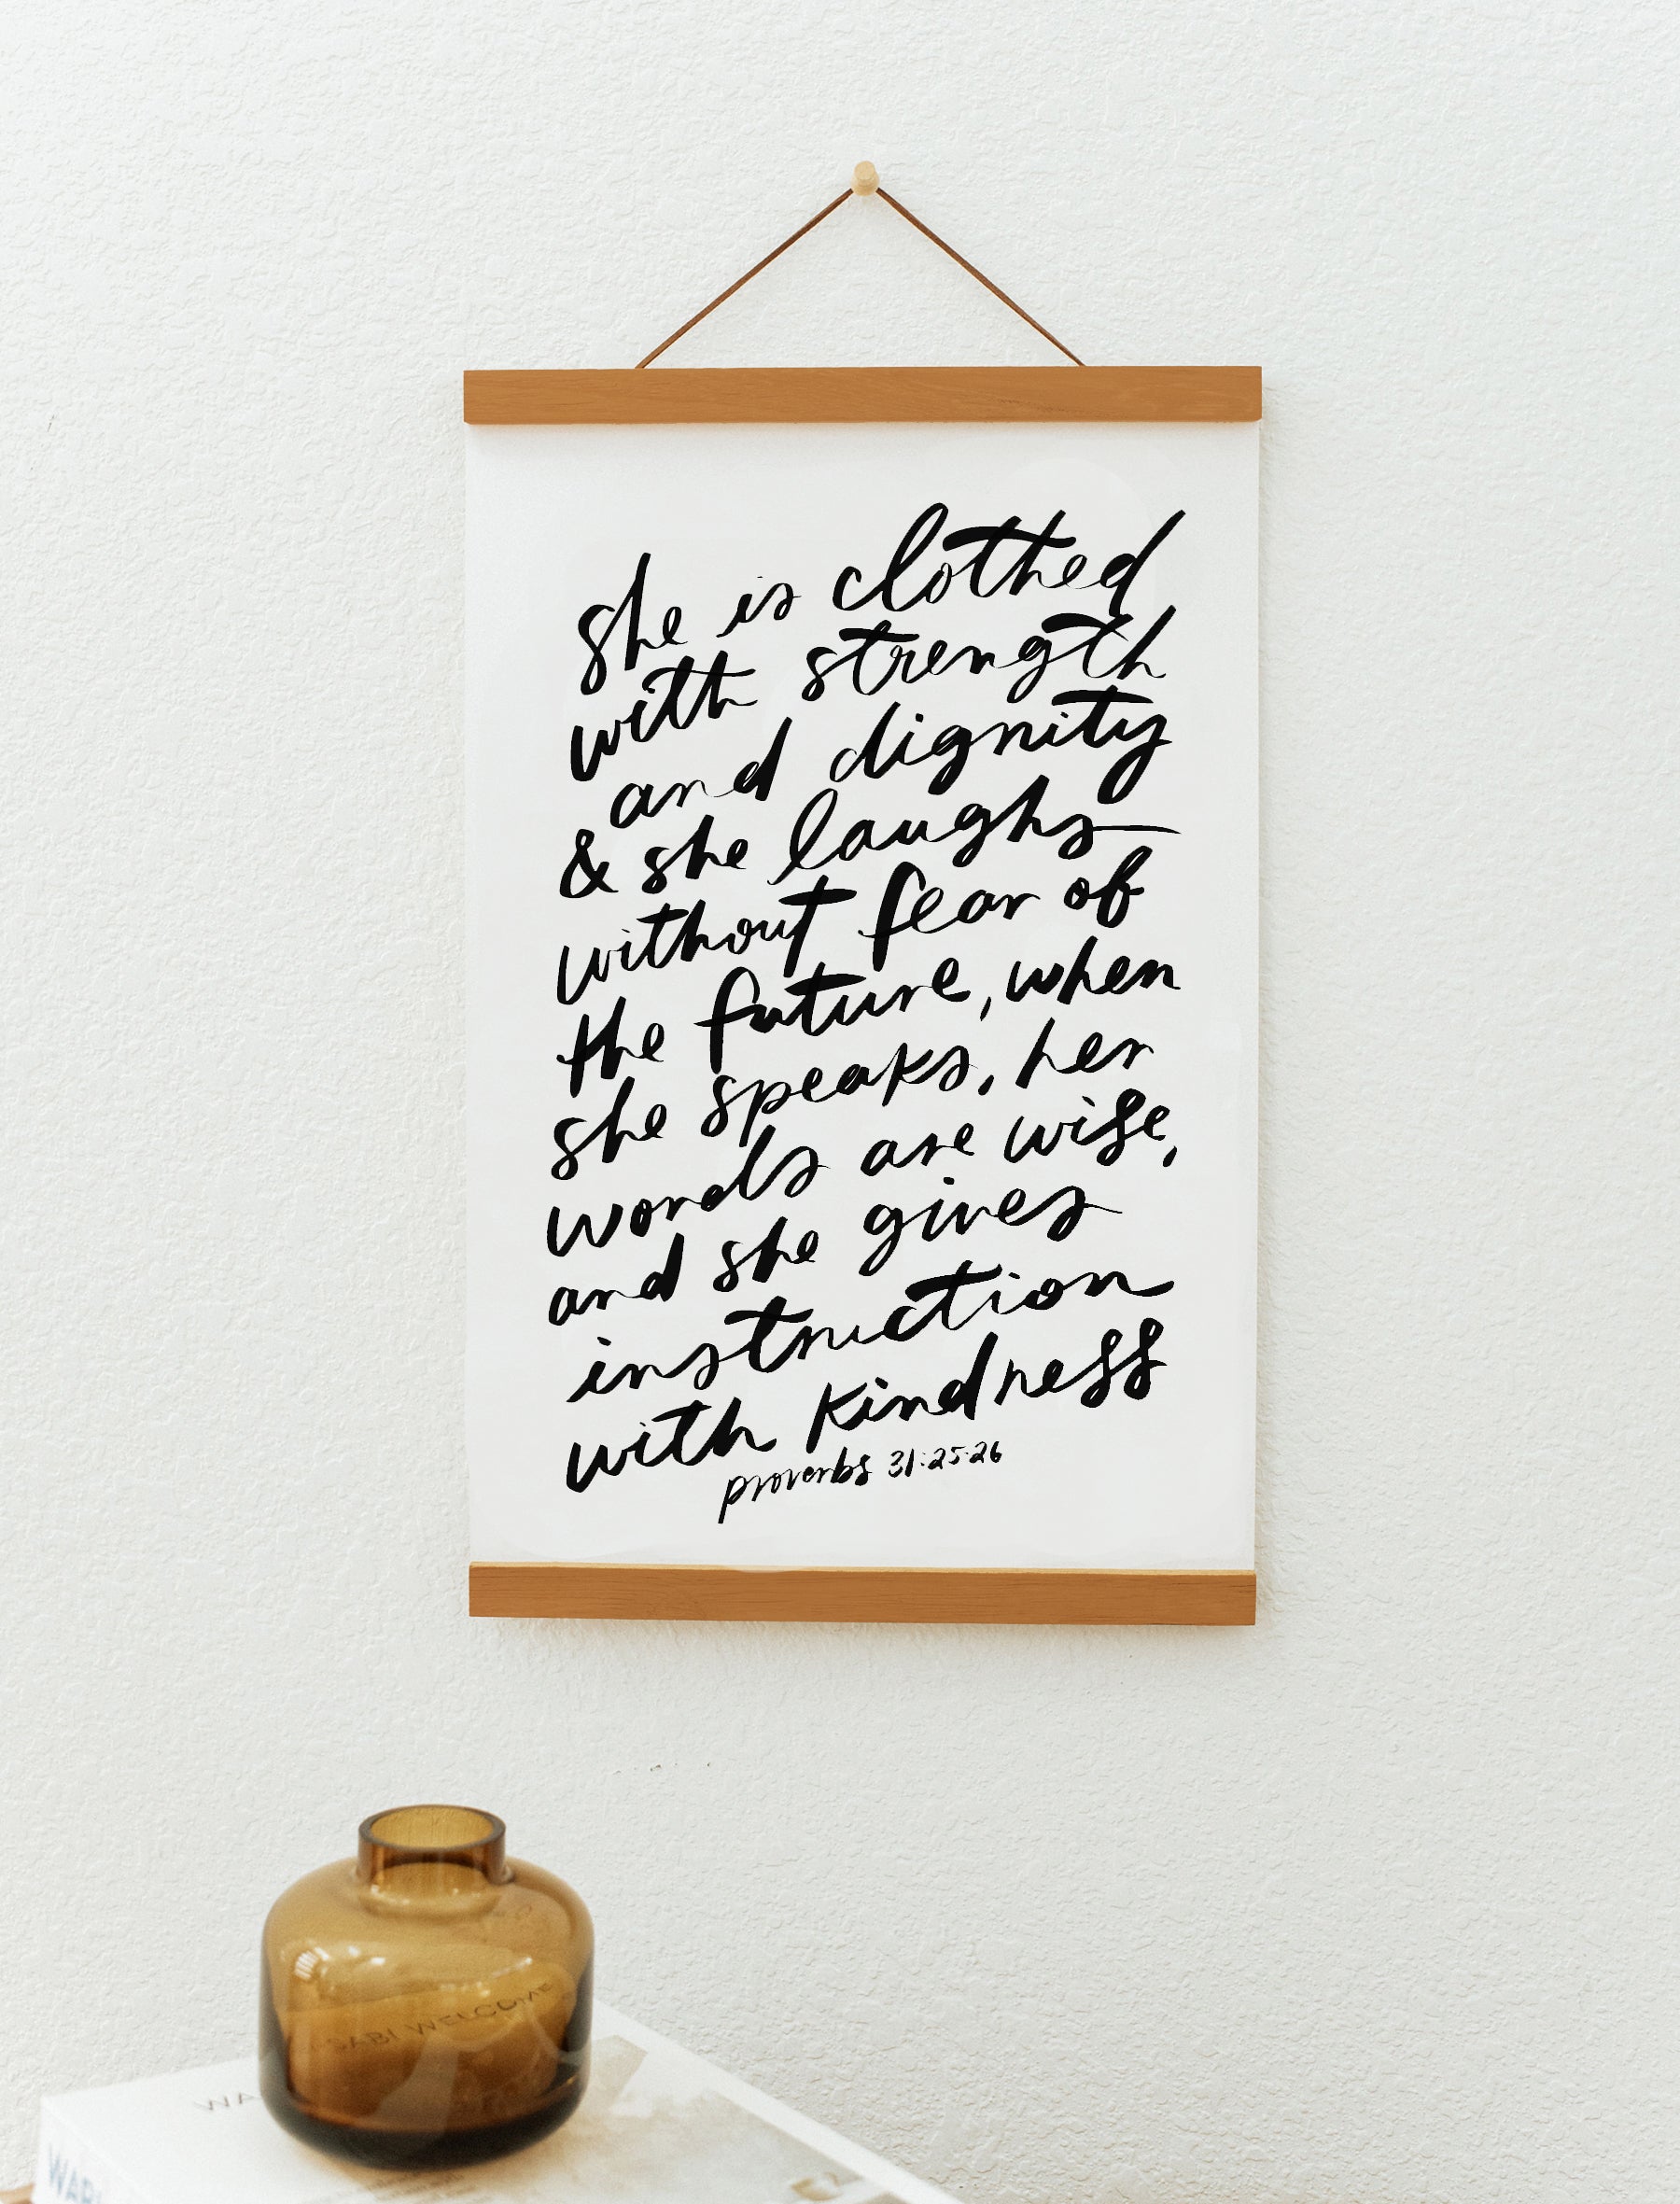 she is clothed
with strength
and dignity
& she laughs
without fear of
the future, when
she speaks, her
words are wise,
and she gives
instruction
with kindness
proverbs 31:25-26
SABI WELCOME